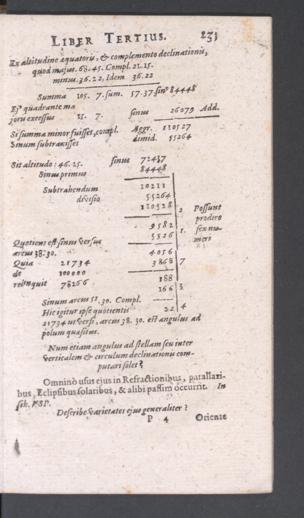 LIBER TERTIUS. 231
Ex altitudine æquatoris, & complemento declinationis,
quod majus. 68.45. Compl. 21.15.
minus. 36.22. Idem 36.22
Summa 105. 7. sum. 57.37. sinꝰ 84448
Ejꝰ quadrante ma
joris excessus 15. 7. sinus 26079 Add.
Si summa minor fuisset, compl. Aggr. 110527
Sinum subtraxisses dimid. 55264
Sit altitudo: 46.25. sinus 72437
Sinus primus 84448
Subtrahendum 12211
divisio 55264
120528 2 Possunt
prodire
9582 1. sex nu-
Quotiens est sinus versus 5526 mero
arcus 38.30. 4056
Quia 21734 3868 7
de 100000
relinquit 78266 188
166 3
Sinum arcus 51.30. Compl.
Hic igitur ipse quotiens 22 4
21734 ut versꝰ, arcus 38.30. est angulus ad
polum quæsitus.
Num etiam angulus ad stellam seu inter
verticalem & circulum declinationis com-
putari solet?
Omninò usus ejus in Refractionibus, parallaxi-
bus, Eclipsibus solaribus, & alibi passim occurrit. In
sch. PSP.
Describe varietates ejus generaliter?
P 4 Oriente